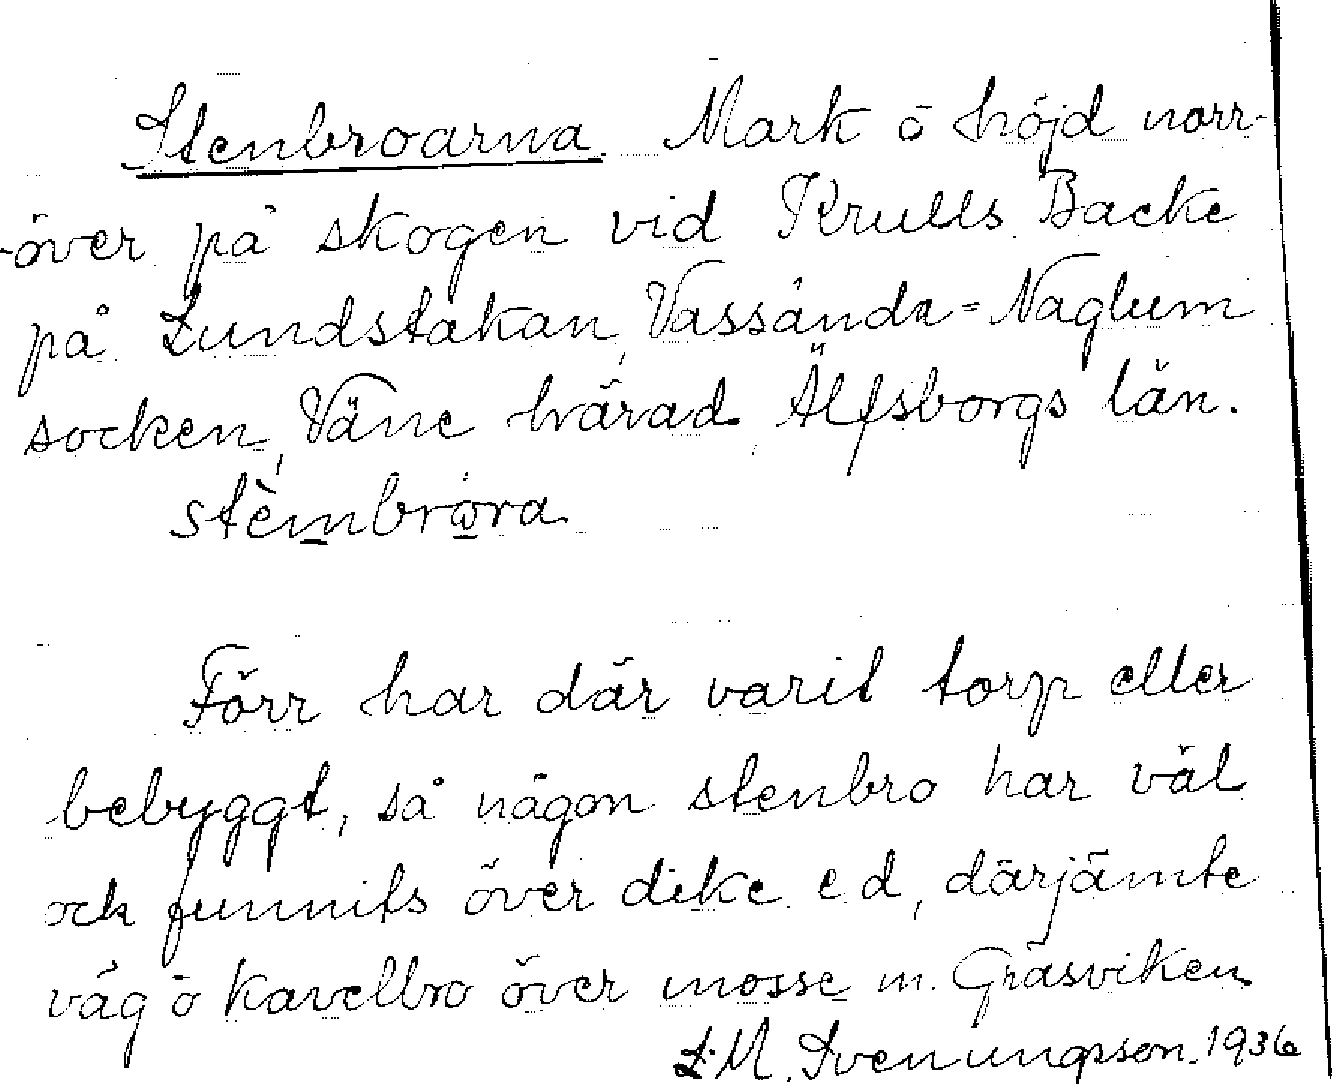 Stenbroarna. Mark ö höjd norr-
-över på skogen vid Krulls Backe
på Lundstakan, Vassända=Naglum
socken, Väne härad, Älfsborgs län.
stèmbrora
Förr har där varit torp eller
bebyggt, så någon stenbro har väl
ock funnits över dike e.d, därjämte
väg ö kavelbro över mosse m. Gräsviken
L.M. Svenungsson. 1936